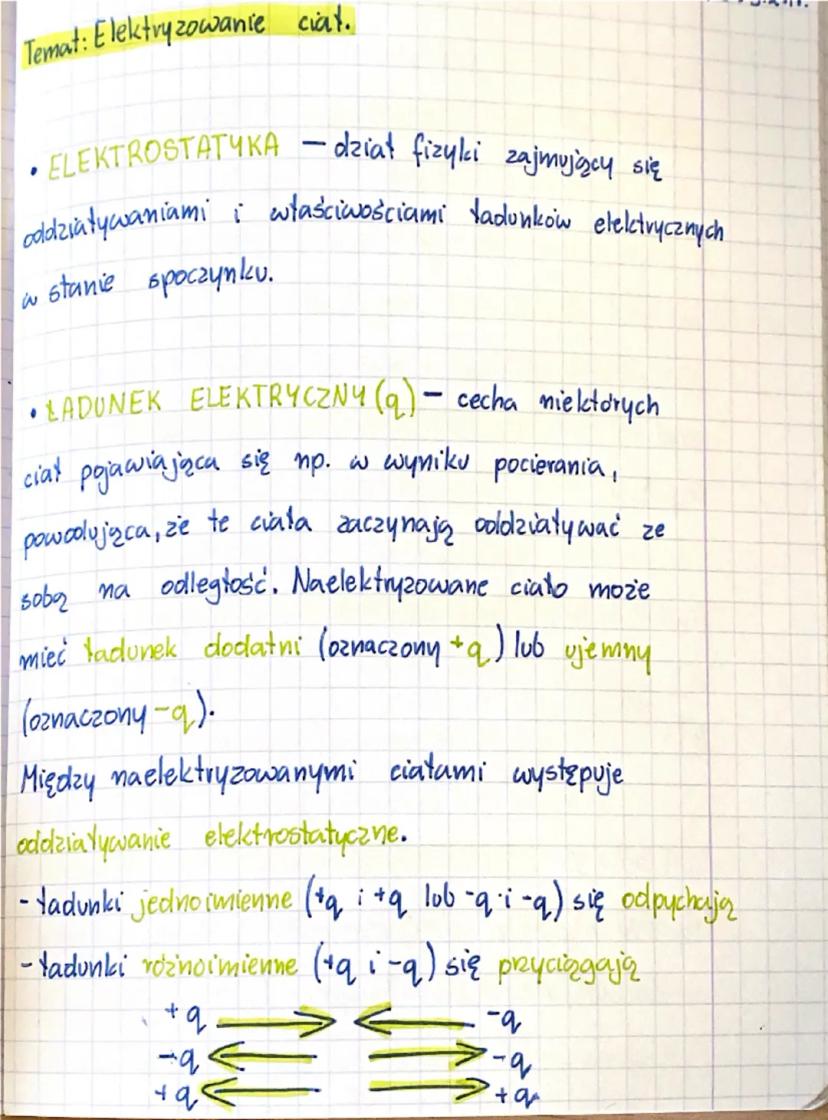 Temat: Elektryzowanie ciał.
• ELEKTROSTATYKA – dział fizyki zajmujący się
oddziaływaniami i właściwościami ładunków elektrycznych
w stanie spoczynku.
• ŁADUNEK ELEKTRYCZNY (q) – cecha niektórych
ciał pojawiająca się np. w wyniku pocierania,
powodująca, że te ciała zaczynają oddziaływać ze
sobą na odległość. Naelektryzowane ciało może
mieć ładunek dodatni (oznaczony +q) lub ujemny
(oznaczony -q).
Między naelektryzowanymi ciałami występuje
oddziaływanie elektrostatyczne.
- ładunki jednoimienne (+q i +q lub -q i -q) się odpychają
- ładunki różnoimienne (+q i -q) się przyciągają
+q -q
-q -q
+q +q